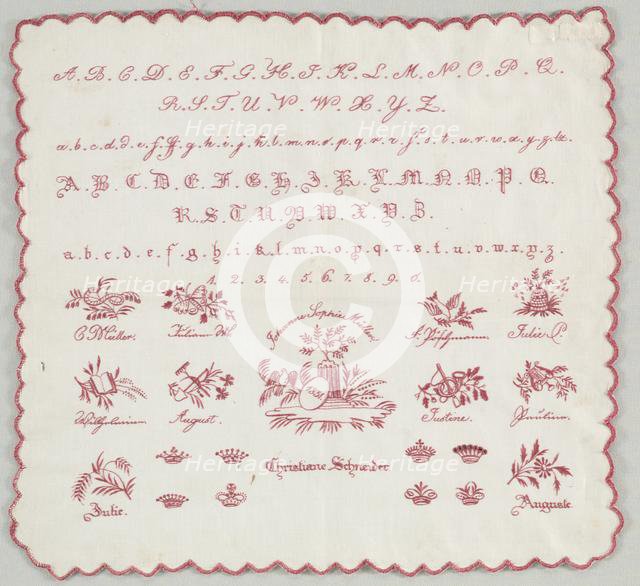 A. B. C. D. E. F. G. H. I. K. L. M. N. O. P. Q.
R. S. T. U. V. W. X. Y. Z.
A. B. C. D. E. F. G. H. I. K. L. M. N. O. P. Q.
R. S. T. U. V. W. X. Y. Z.
a. b. c. d. e. f. g. h. i. k. l. m. n. o. p. q. r. s. t. u. v. w. x. y. z.
2. 3. 4. 5. 6. 7. 8. 9. 0.
C. Müller.
Julie P.
Johanne Sophie
Wilhelmine
August.
Justine.
Pauline.
Julie.
Christiane Schneider
Auguste
Heritage
Heritage
Heritage
Heritage
Heritage
Heritage
Heritage
Heritage